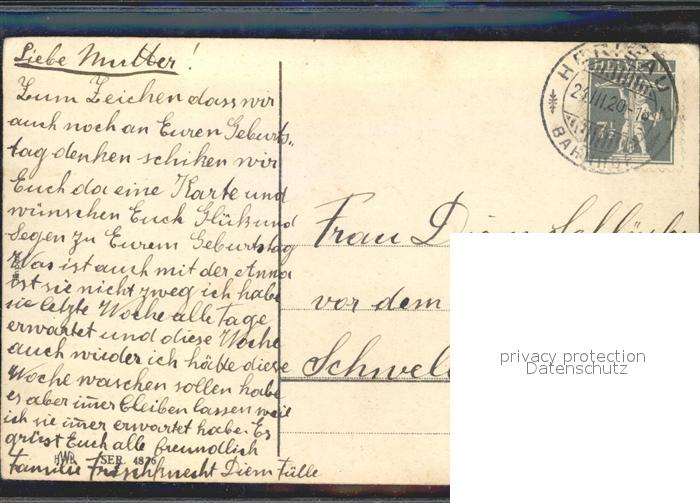 Liebe Mutter!
Zum Zeichen dass wir
auch noch an Euren Geburts-
tag denken schiken wir
Euch da eine Karte und
wünschen Euch Glük und
Segen zu Eurem Geburtstag
Was ist auch mit der Anna
ist sie nicht zweg ich habe
sie letzte Woche alle Tage
erwartet und diese Woche
auch wieder ich hätte diese
Woche waschen sollen habe
es aber imer bleiben lassen weil
ich sie imer erwartet habe. Es
grüsst Euch alle freundlich
Familie Diem Fülle
HWB SER. 4876
HERISAU
HELVETIA
BAHNHOF
Frau
vor dem
privacy protection
Datenschutz